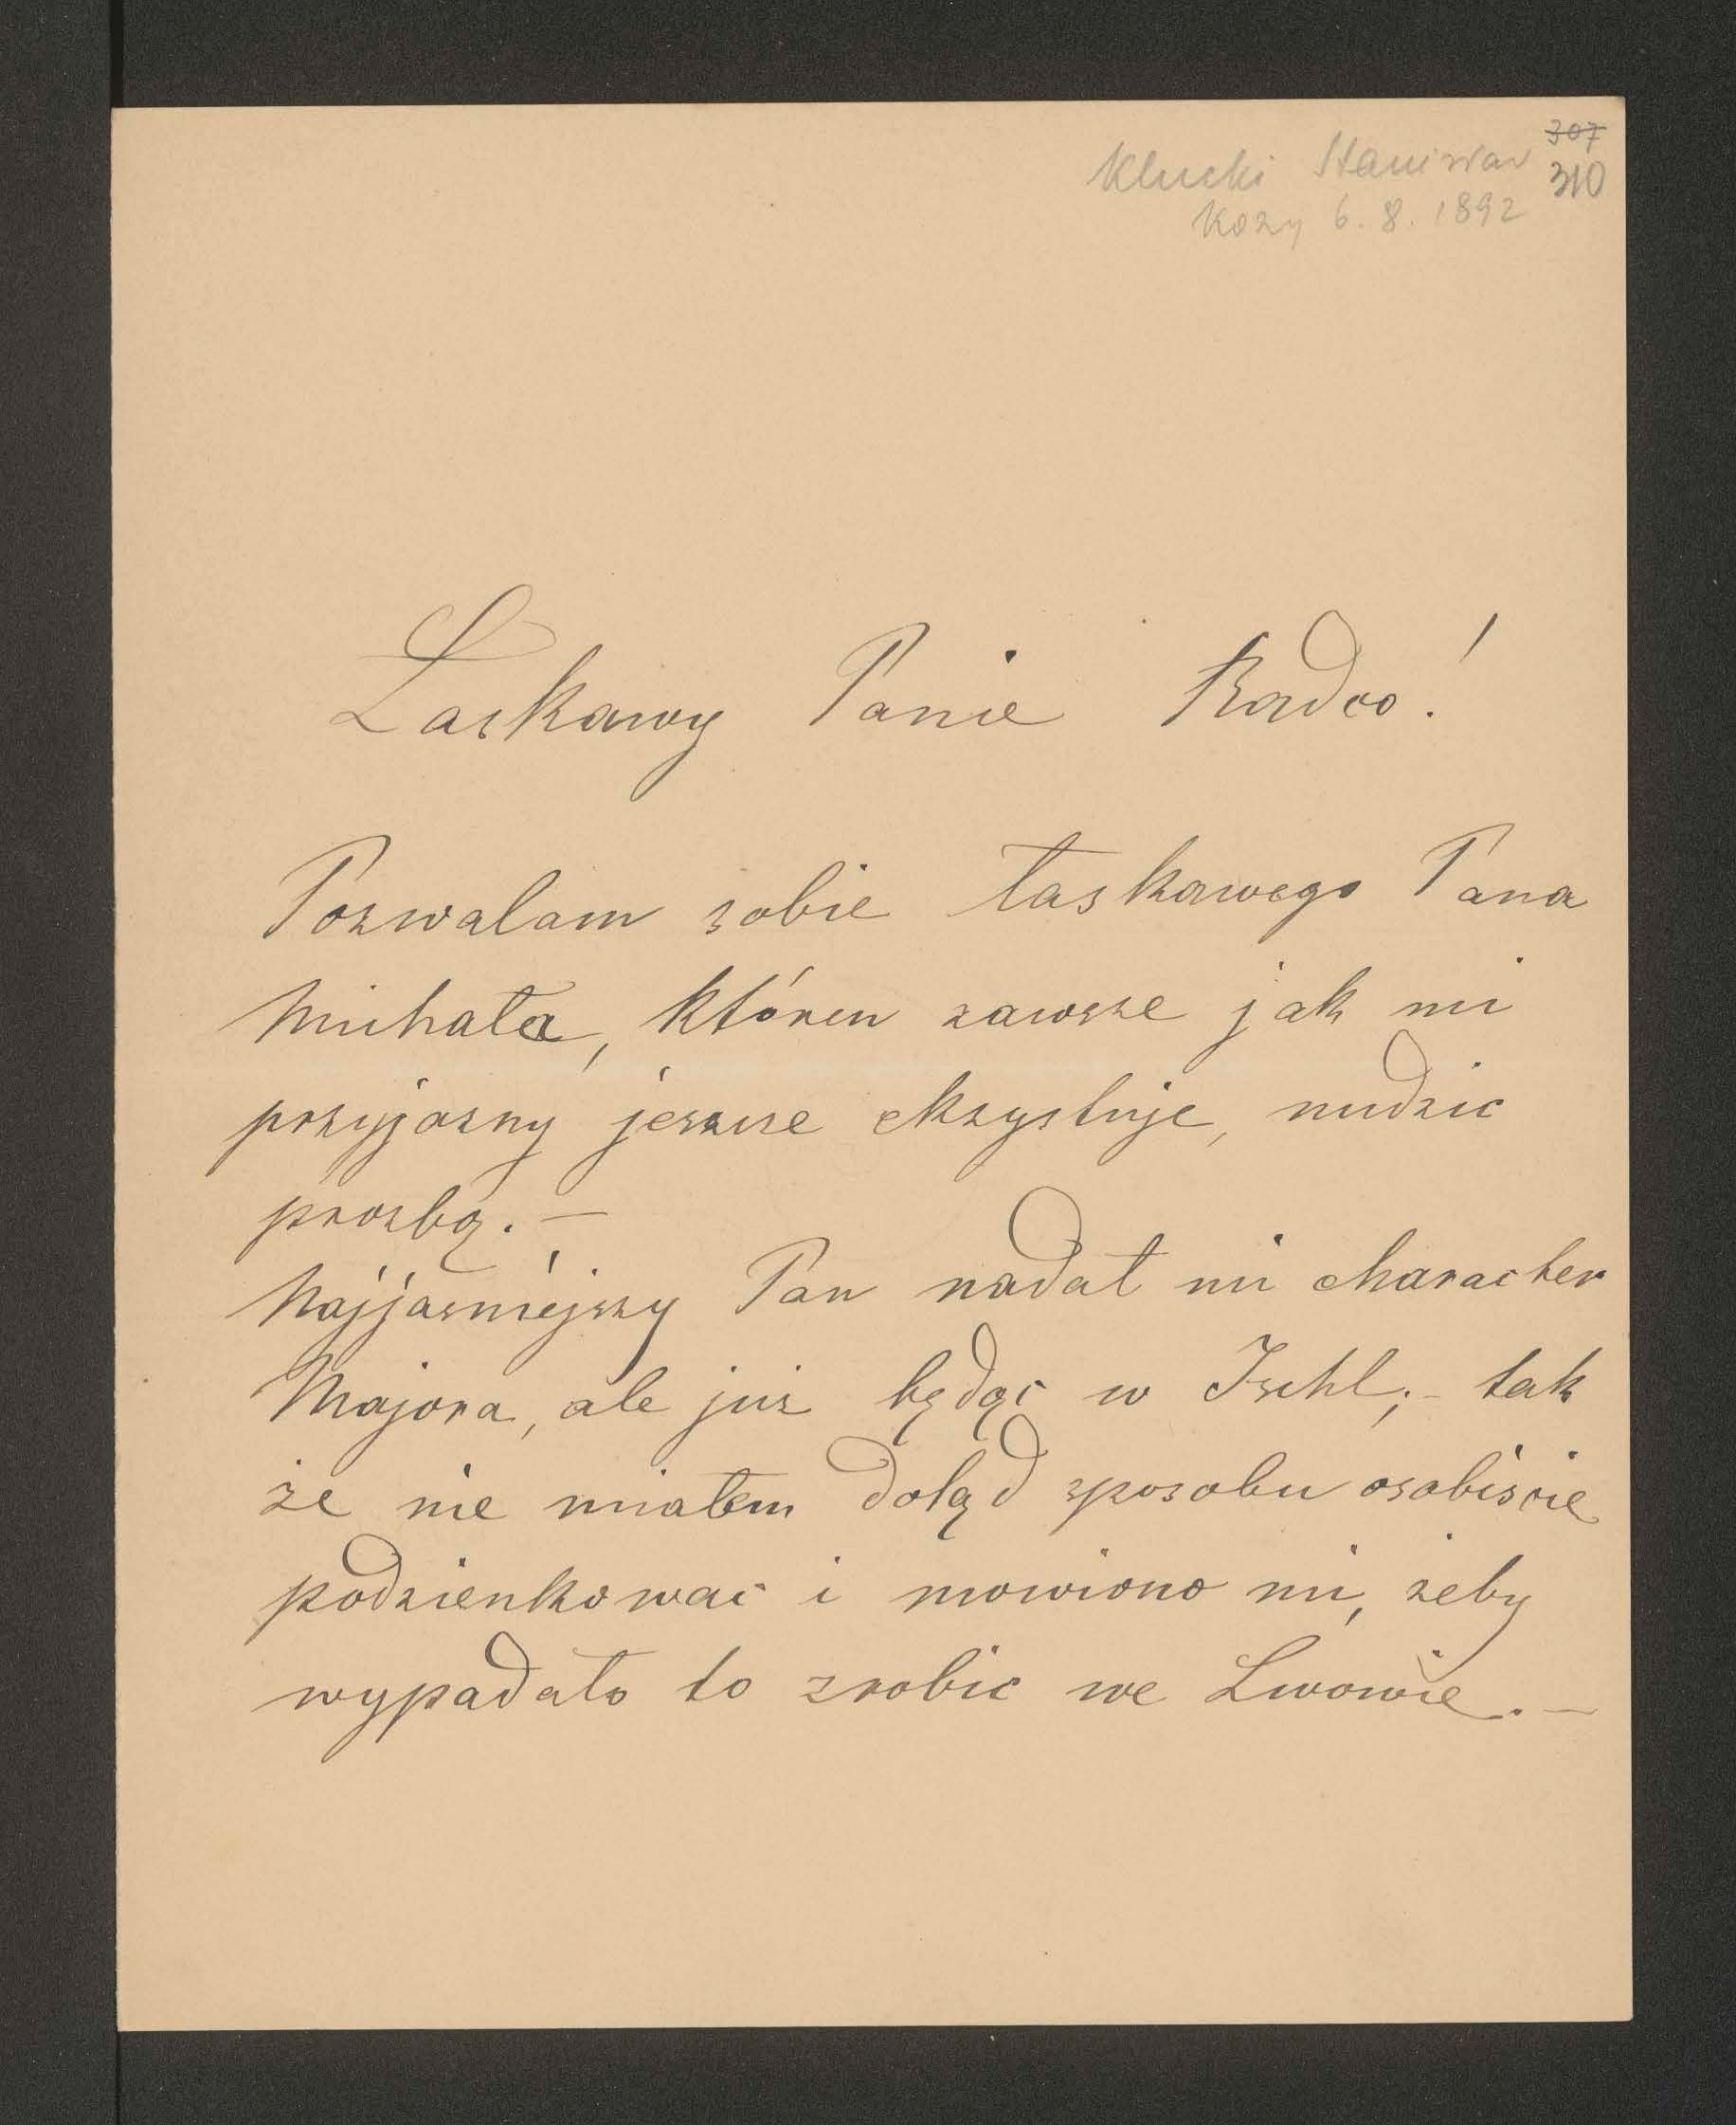 307
310
Klucki Stanisław
Kozy 6. 8. 1892
Łaskawy Panie Radco!
Pozwalam sobie łaskawego Pana
Michała, któren zawsze jak mi
przyjazny jeszcze ekzystuje, nudzic
prozbą. —
Najjasniejszy Pan nadał mi character
Majora, ale juz będąc w Ischl; - tak
że nie miałem dotąd sposobu osobiście
podzienkować i mowiono mi, żeby
wypadało to zrobic we Lwowie. —